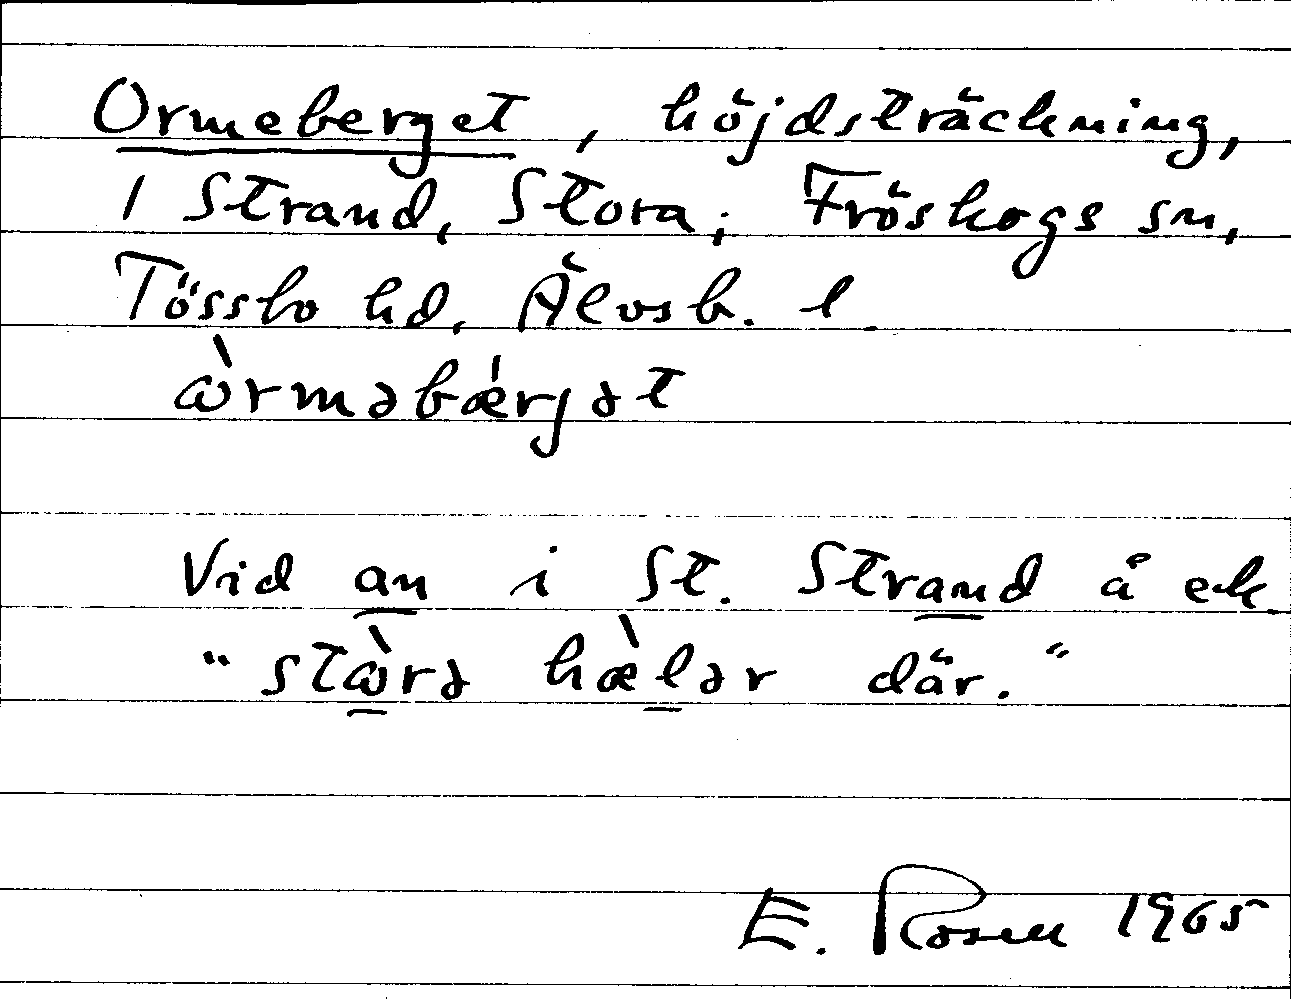 Ormeberget, höjdsträckning,
1 Strand, Stora; Fröskogs sn,
Tössbo hd, Älvsb. l.
ɷ̀rməbǽrjət
Vid an i St. Strand å ek.
"stɷ̀rə hæ̀lər där."
E. Rosen 1965